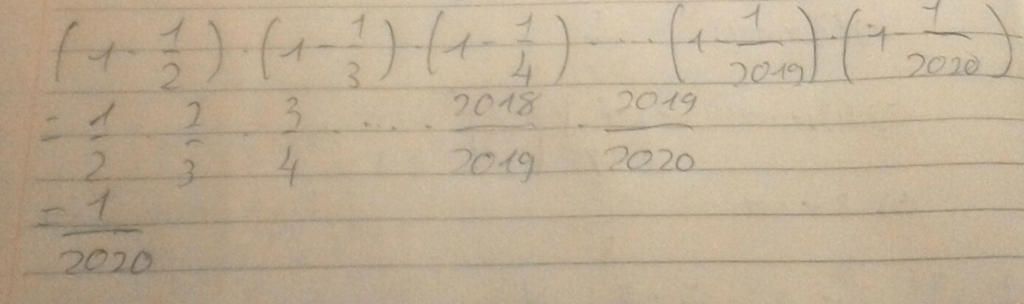 (1 - 1/2) · (1 - 1/3) · (1 - 1/4) · ... · (1 - 1/2019) · (1 - 1/2020)
= 1/2 · 2/3 · 3/4 · ... · 2018/2019 · 2019/2020
= 1/2020